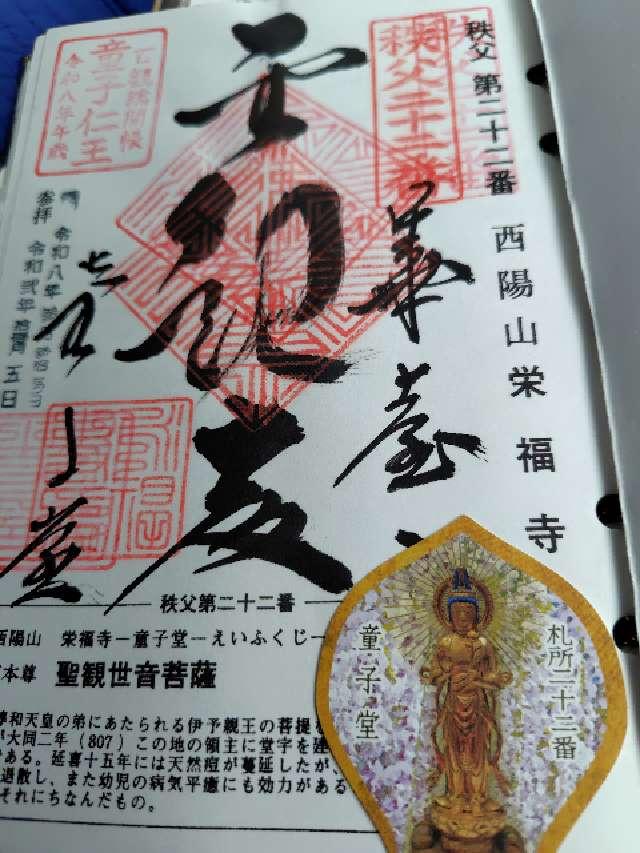 秩父 第二十二番 西陽山栄福寺
秩父二十二番
華臺
聖観
童子堂
百観音御開帳
童子仁王
令和八年午歳
参拝
令和八年
令和弐年
五日
秩父第二十二番
西陽山 栄福寺ー童子堂ーえいふくじー
本尊 聖観世音菩薩
和天皇の弟にあたられる伊予親王の菩提
大同二年(807)この地の領主に堂宇を建
である。延喜十五年には天然痘が蔓延したが、
退散し、また幼児の病気平癒にも効力がある
それにちなんだもの。
札所二十二番
童子堂